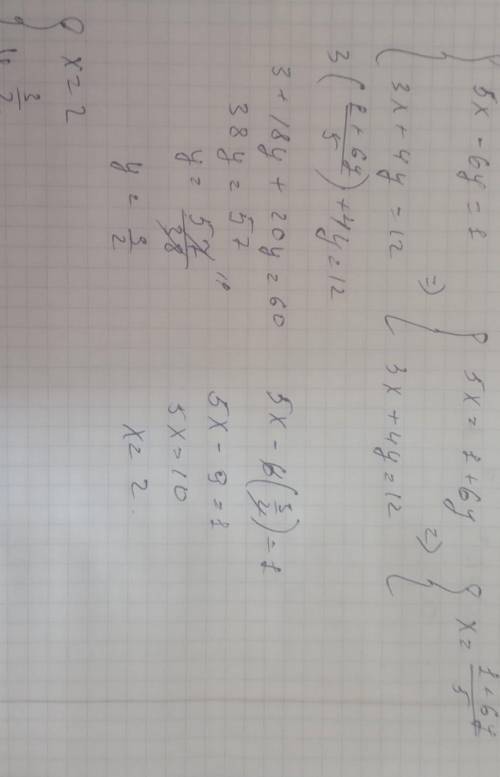 { 5x - 6y = 1
{ 3x + 4y = 12 => { 5x = 1 + 6y
{ 3x + 4y = 12 => { x = (1 + 6y)/5
3((1 + 6y)/5) + 4y = 12
3 + 18y + 20y = 60
38y = 57
y = 57/38 19
y = 3/2
5x - 6(3/2) = 1
5x - 9 = 1
5x = 10
x = 2.
{ x = 2
{ y = 3/2